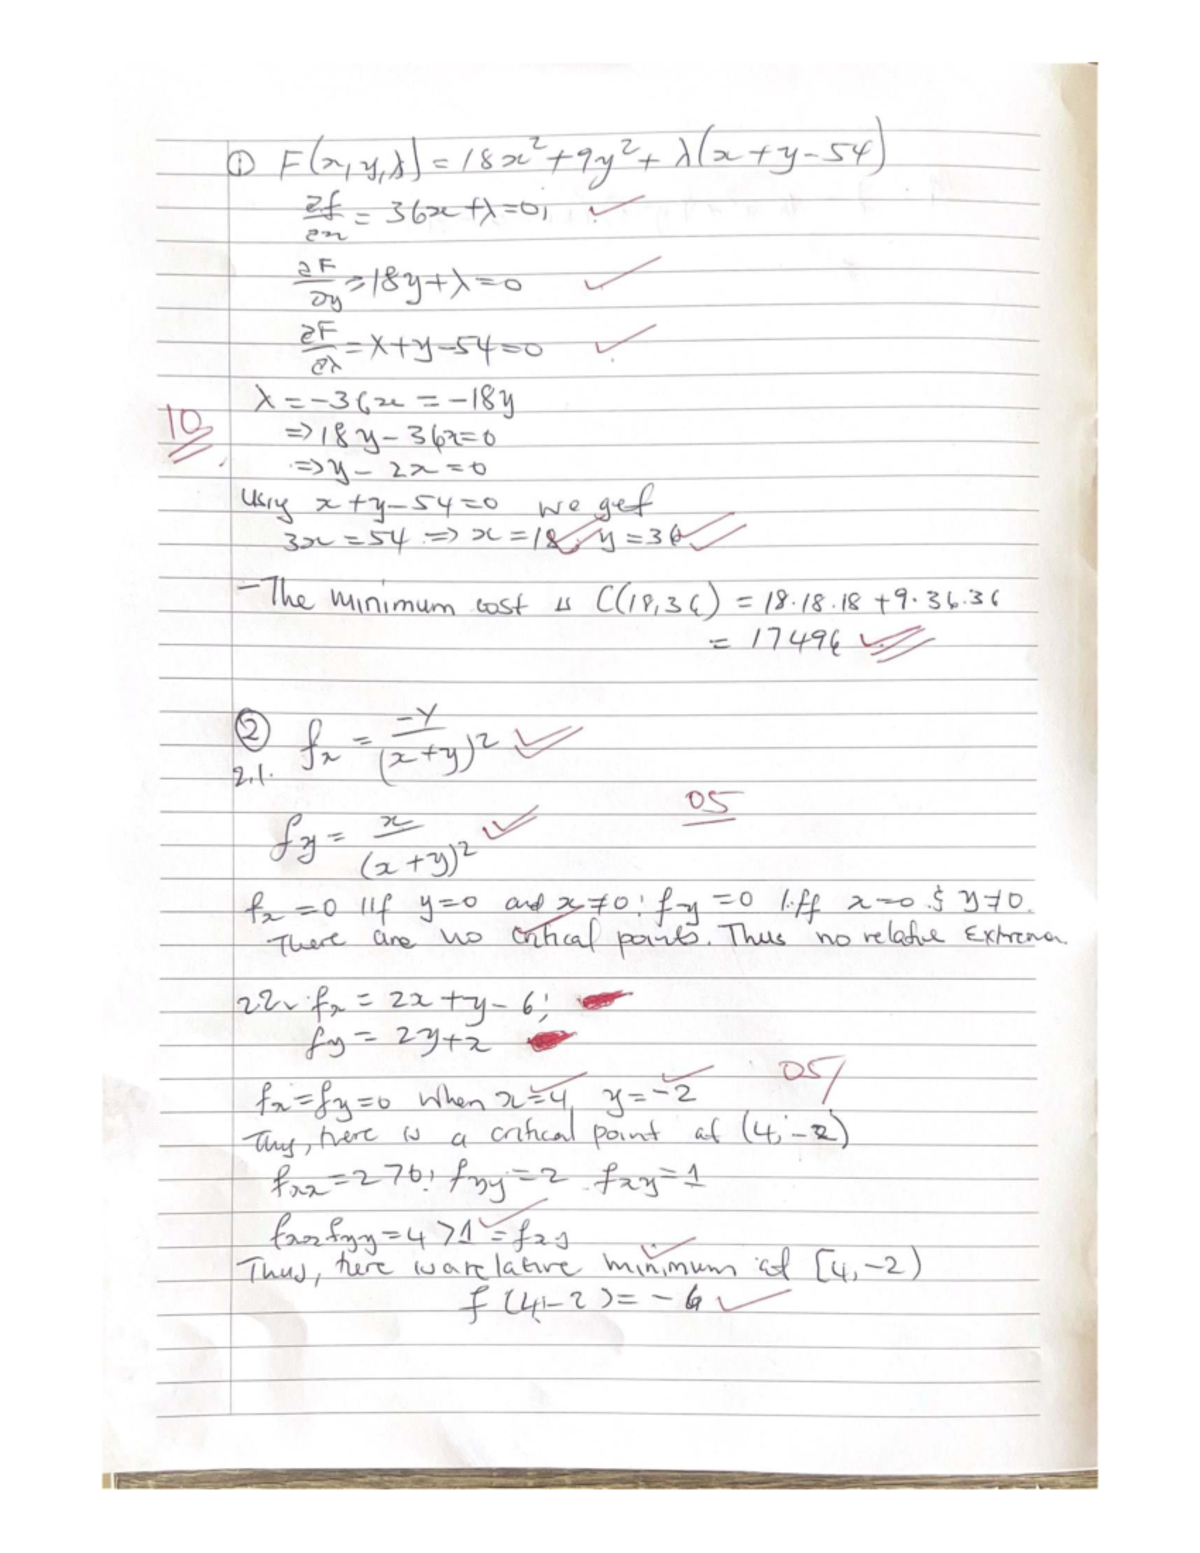 ① F(x,y,λ) = 18x² + 9y² + λ(x+y-54)
∂f/∂x = 36x+λ=0,
∂F/∂y = 18y+λ=0
∂F/∂λ = x+y-54=0
λ = -36x = -18y
10
⇒ 18y - 36x=0
⇒ y - 2x = 0
Using x+y-54=0 we get
3x = 54 ⇒ x = 18, y = 36
- The minimum cost is C(18,36) = 18.18.18 + 9.36.36
= 17496
② fx = -y/(x+y)²
2.1.
05
fy = x/(x+y)²
fx = 0 iff y=0 and x≠0; fy = 0 iff x=0 & y≠0.
There are no critical points. Thus no relative Extrema
2.2. fx = 2x+y-6;
fy = 2y+x
05
fx = fy = 0 when x=4, y=-2
Thus, there is a critical point at (4,-2)
fxx = 2>0; fyy = 2 . fxy = 1
fxx fyy = 4 > 1 = fxy
Thus, there is a relative minimum at (4,-2)
f(4,-2) = -6